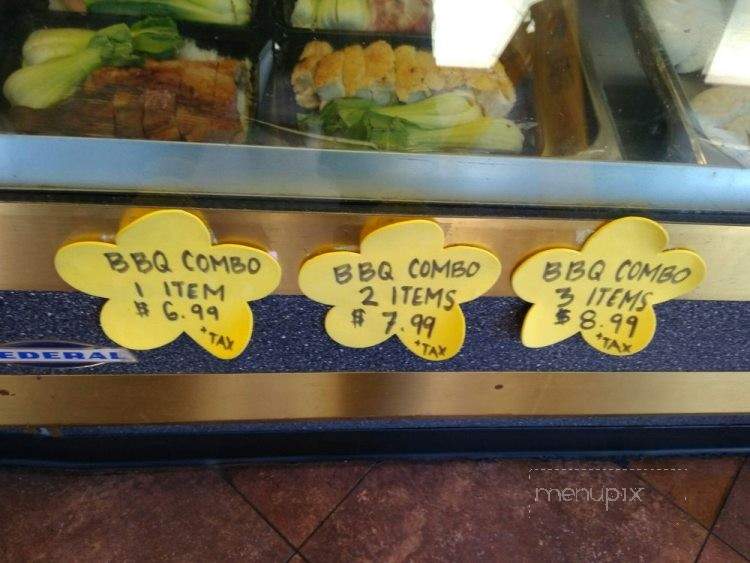 BBQ COMBO
1 ITEM
$ 6.99
+TAX
BBQ COMBO
2 ITEMS
$ 7.99
+TAX
BBQ COMBO
3 ITEMS
$ 8.99
+TAX
FEDERAL
menupix